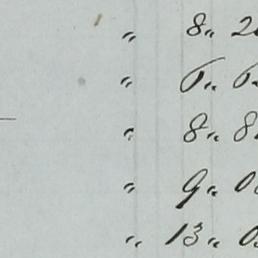 „ 8„ 2
„ 6„ 6
„ 8„ 8
„ 9„ 0
„ 13„ 0